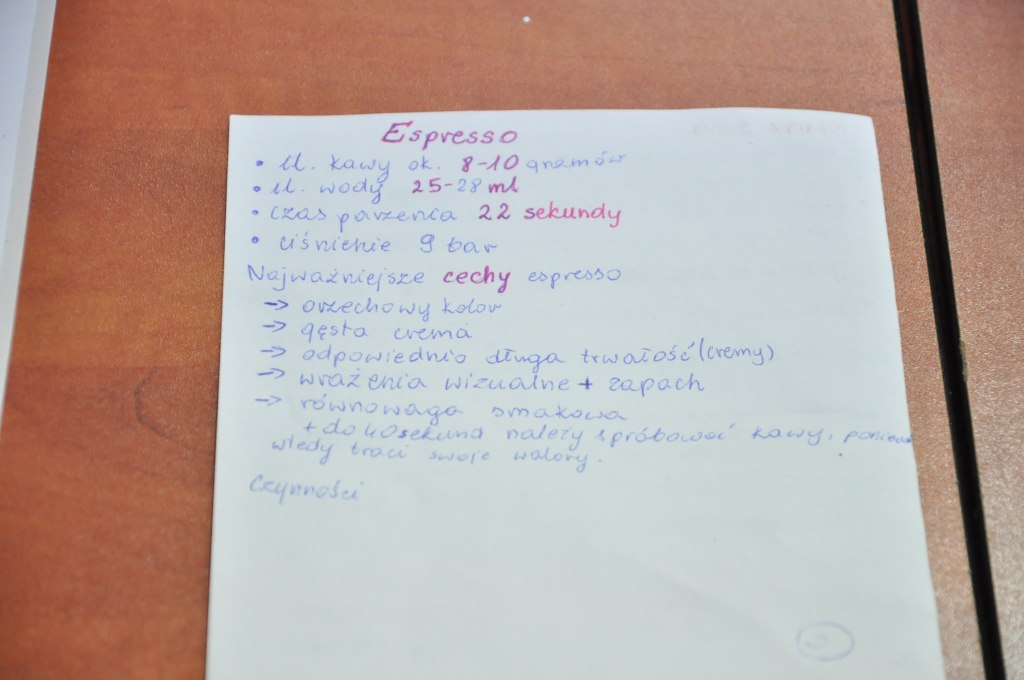 Espresso
• il. kawy ok. 8-10 gramów
• il. wody 25-28 ml
• czas parzenia 22 sekundy
• ciśnienie 9 bar
Najważniejsze cechy espresso
→ orzechowy kolor
→ gęsta crema
→ odpowiednio długa trwałość (cremy)
→ wrażenia wizualne + zapach
→ równowaga smakowa
+ do 40 sekund należy spróbować kawy,
wtedy traci swoje walory.
Czynności